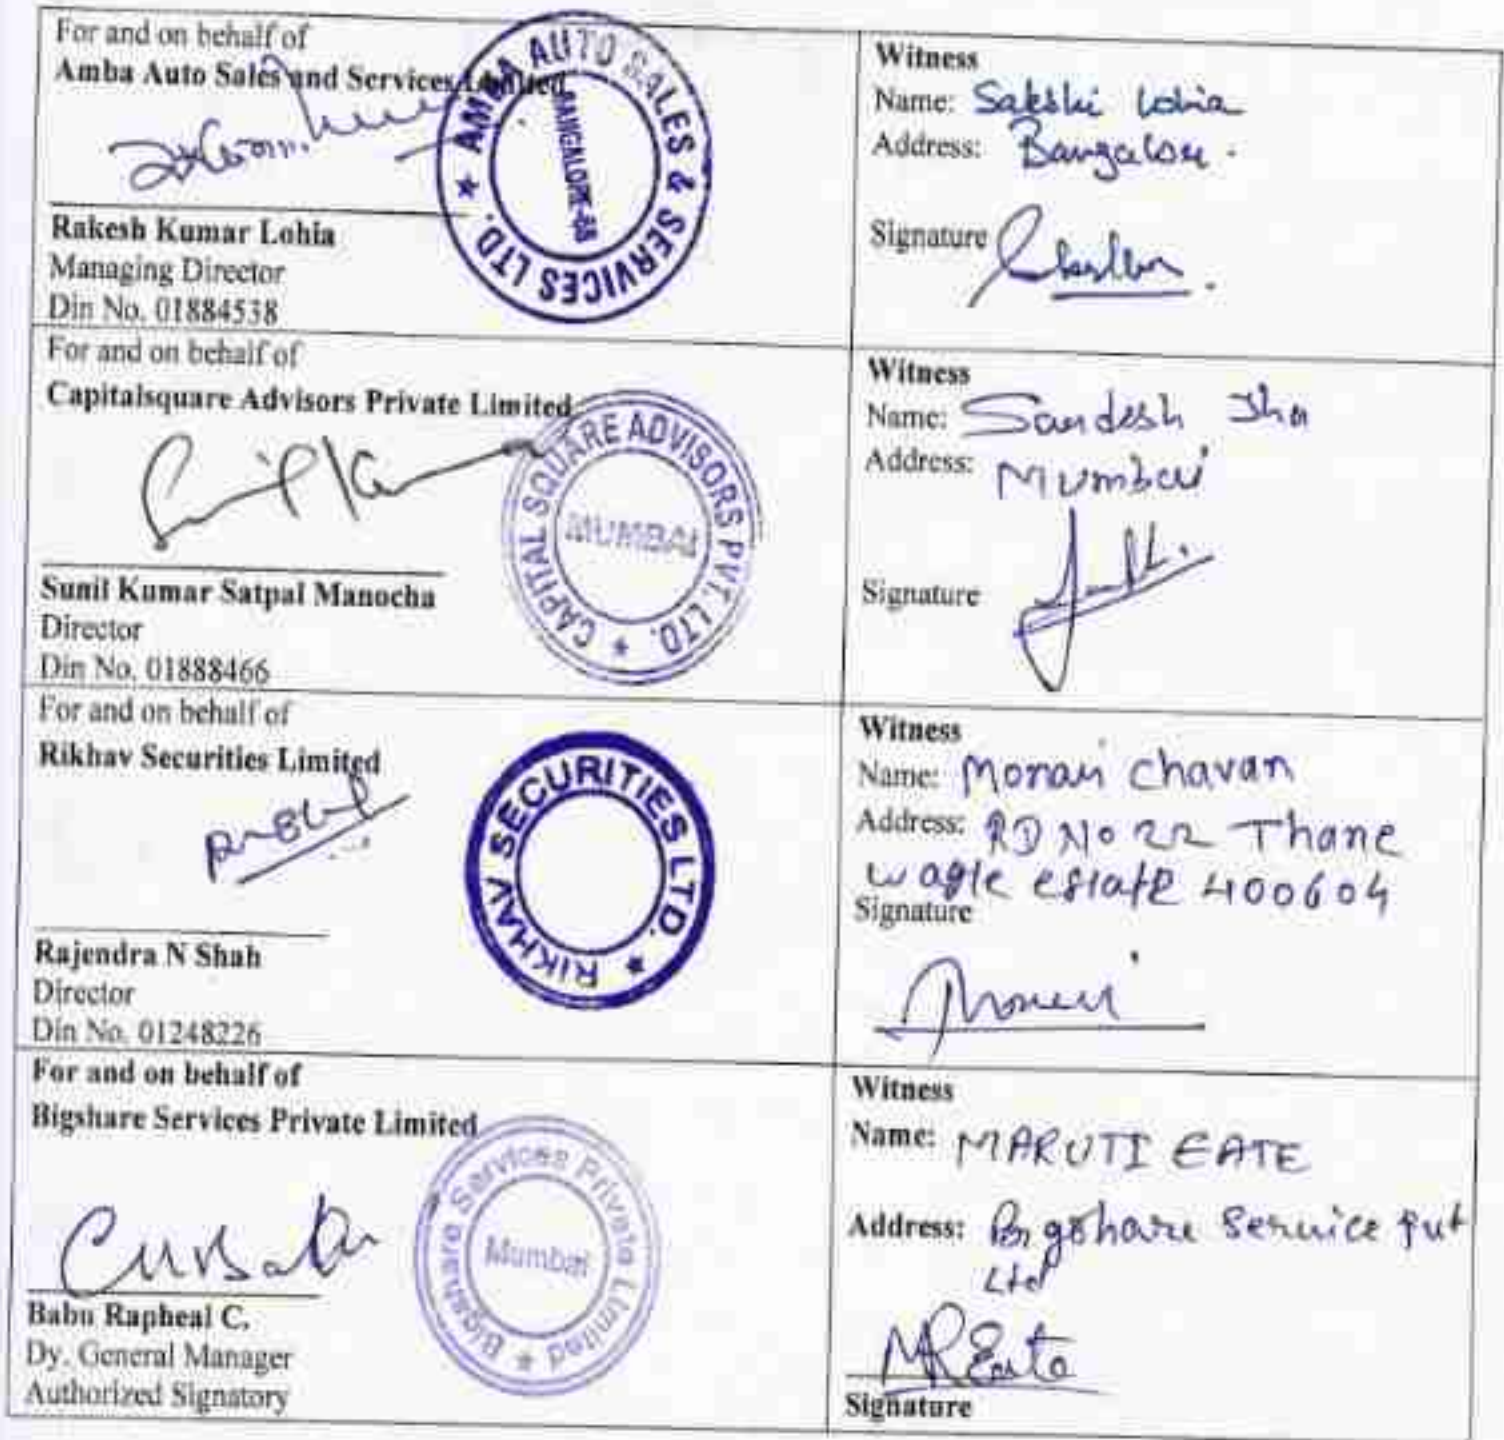 For and on behalf of
Amba Auto Sales and Services Limited
AMBA AUTO SALES & SERVICES LTD. *
BANGALORE-68
Rakesh Kumar Lohia
Managing Director
Din No. 01884538
Witness
Name: Sakshi Lohia
Address: Bangalore.
Signature
For and on behalf of
Capitalsquare Advisors Private Limited
CAPITAL SQUARE ADVISORS PVT. LTD. *
MUMBAI
Sunil Kumar Satpal Manocha
Director
Din No. 01888466
Witness
Name: Sandesh Jha
Address: Mumbai
Signature
For and on behalf of
Rikhav Securities Limited
RIKHAV SECURITIES LTD. *
Rajendra N Shah
Director
Din No. 01248226
Witness
Name: Monali Chavan
Address: RD No 22 Thane
wagle estate 400604
Signature
For and on behalf of
Bigshare Services Private Limited
Bigshare Services Private Limited *
Mumbai
Babu Rapheal C.
Dy. General Manager
Authorized Signatory
Witness
Name: MARUTI EATE
Address: Bigshare Service Pvt
Ltd
MREate
Signature